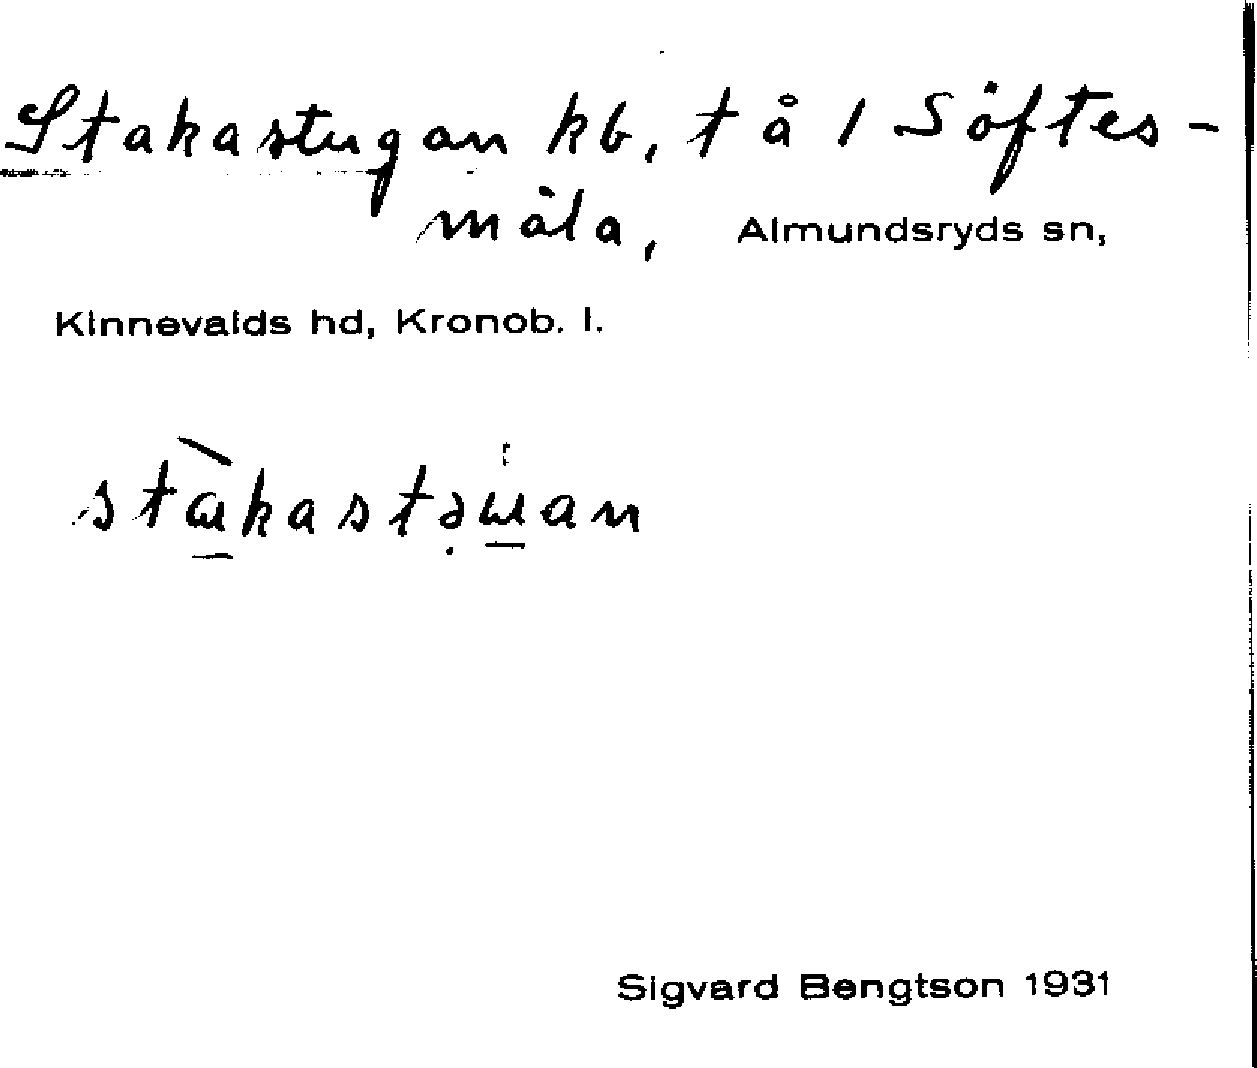 Stakastugan kb, t å 1 Söftes-
måla, Almundsryds sn,
Kinnevalds hd, Kronob. l.
Sigvard Bengtson 1931